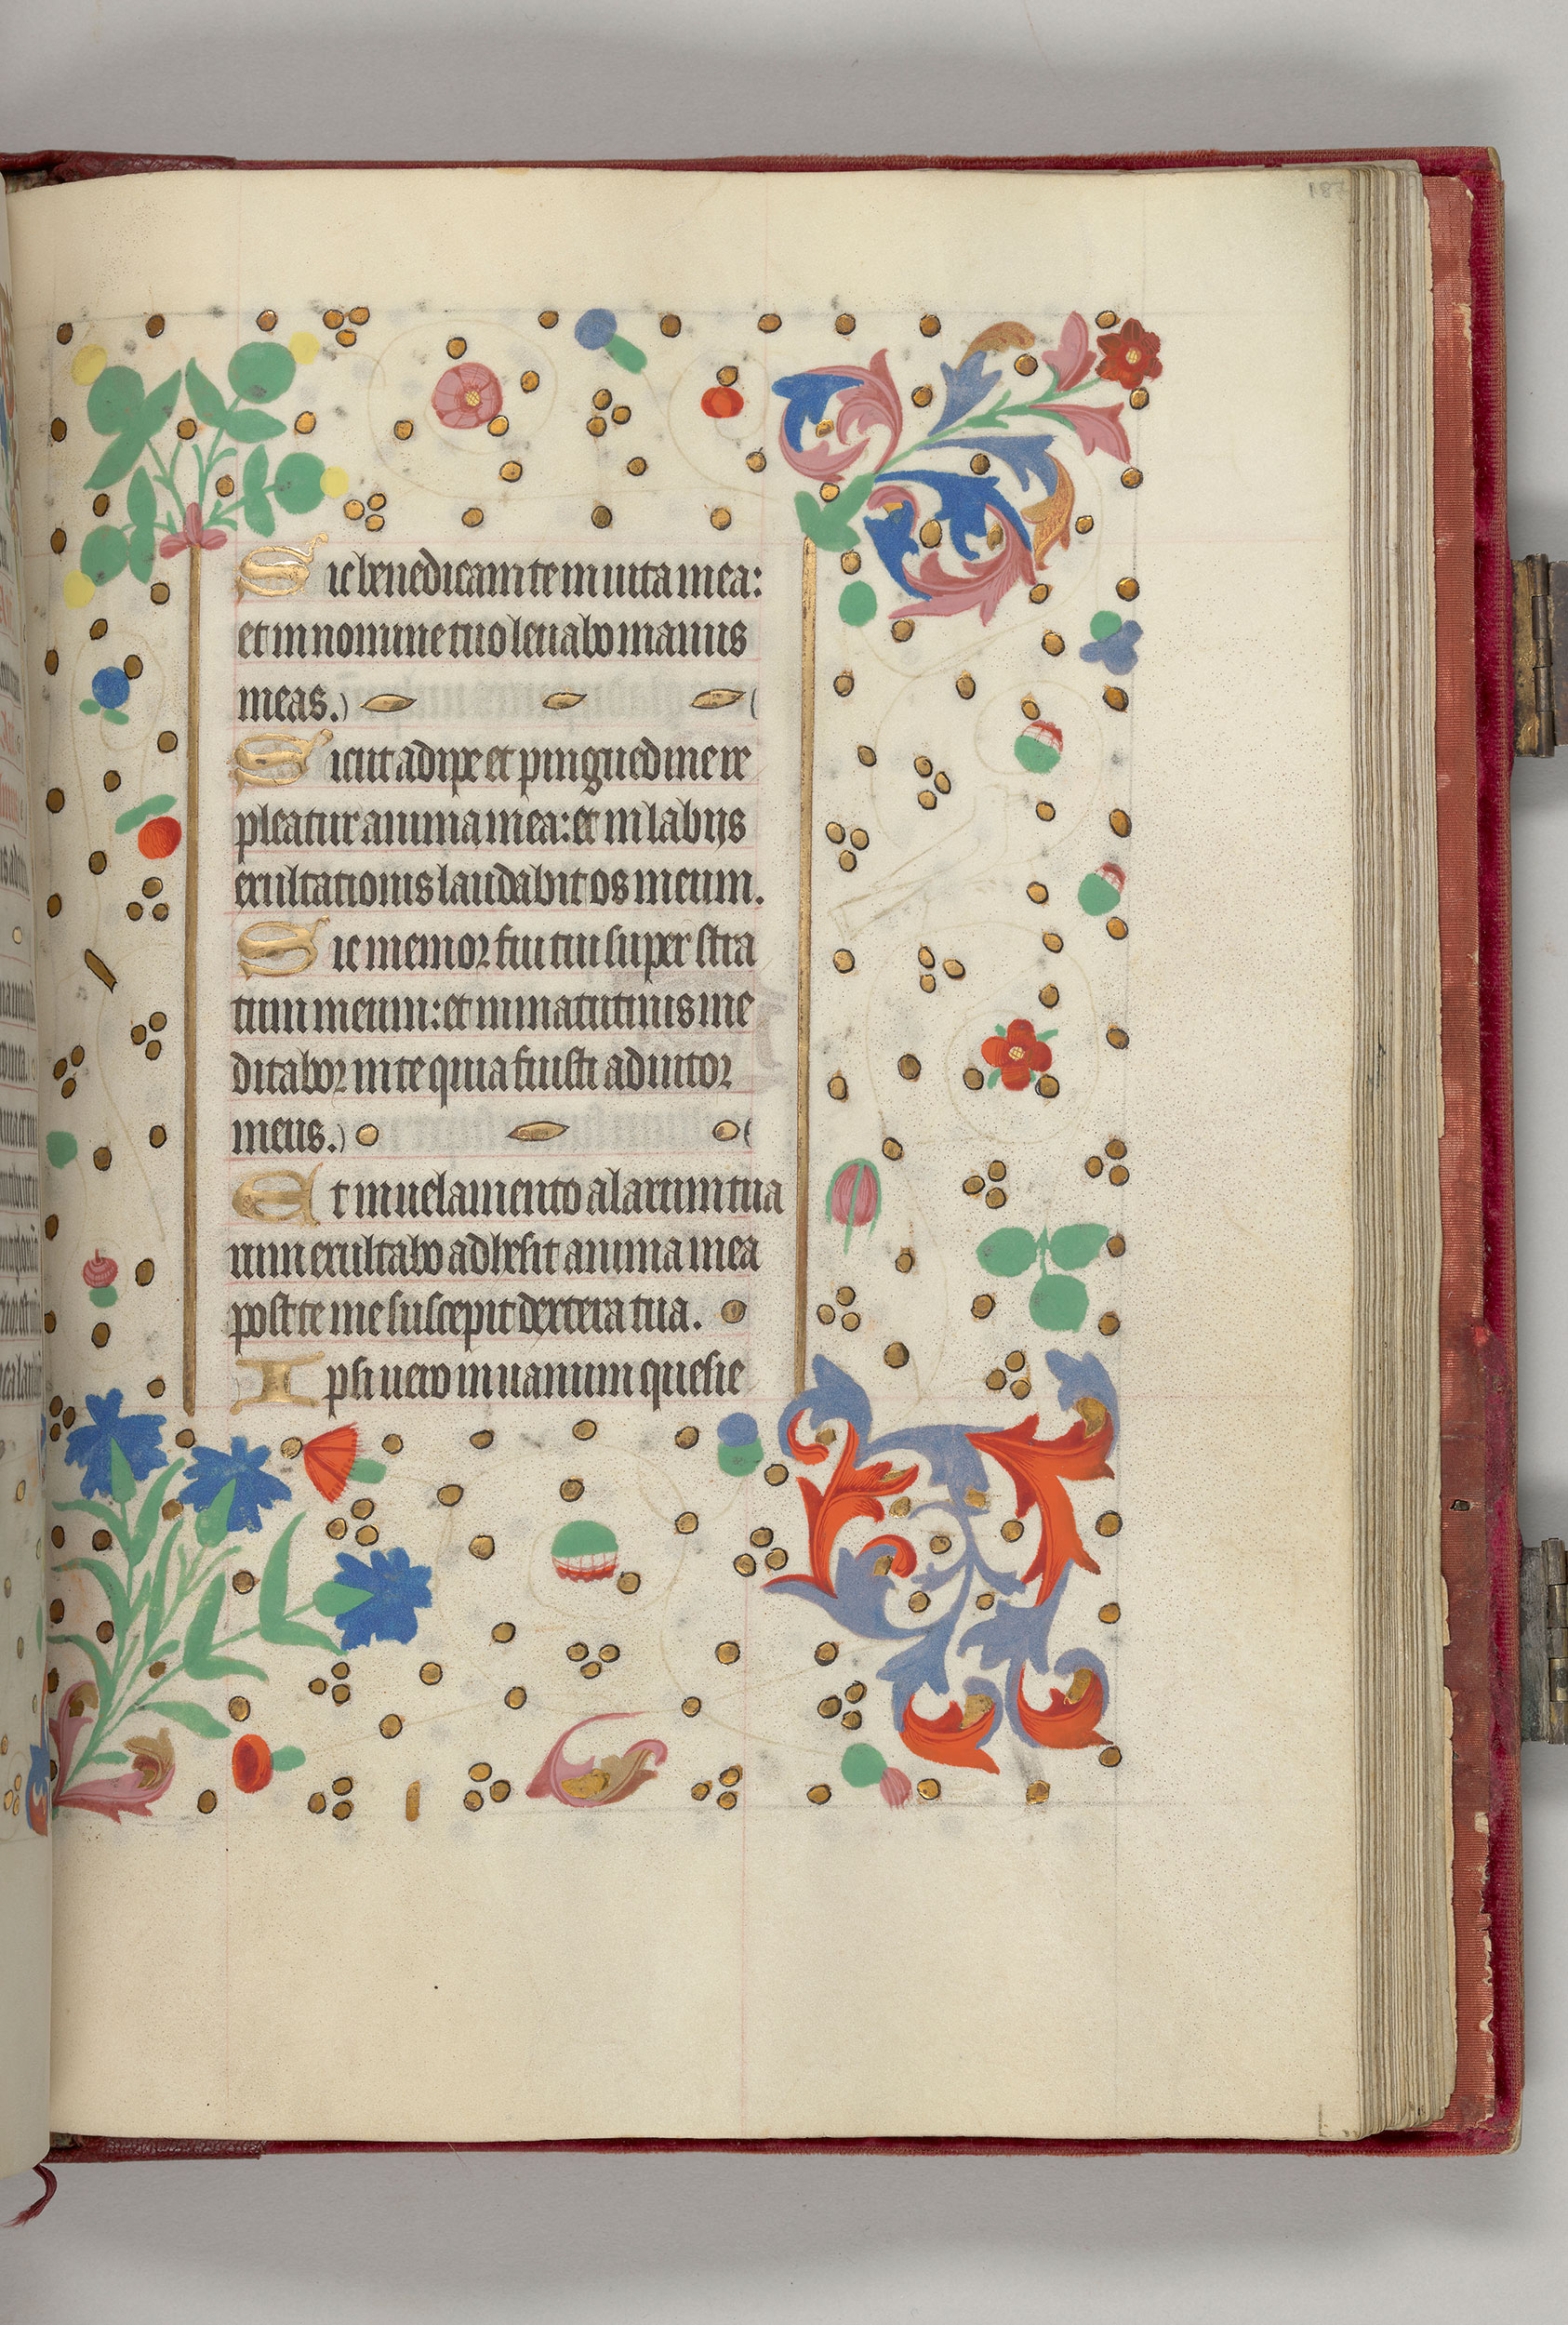 187
Sic benedicam te in uita mea:
et in nomine tuo leuabo manus
meas.
Sicut adipe et pinguedine re
pleatur anima mea: et in labijs
exultationis laudabit os meum.
Sic memor fui tui super stra
tum meum: et in matutinis me
ditabor in te quia fuisti adiutor
meus.
Et in uelamento alarum tua
rum exultabo adhesit anima mea
post te me suscepit dextera tua.
Ipsi uero in uanum quesie